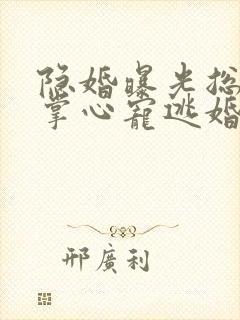 隐婚曝光总
掌心宠逃婚
邢廣利